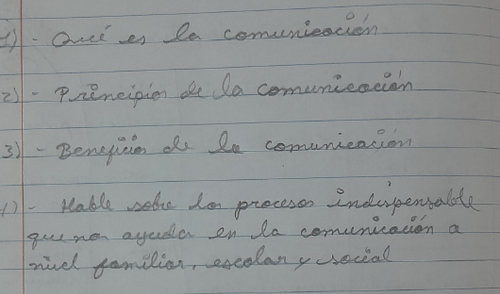 1) - Qué es la comunicación
2) - Principios de la comunicación
3) - Beneficios de la comunicación
4) - Hable sobre los procesos indispensable
que nos ayuda en la comunicación a
nivel familiar, escolar y social